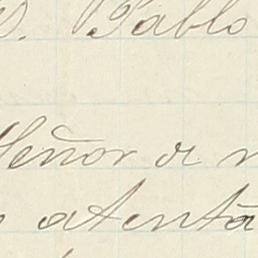 D. Pablo
Señor de
atenta